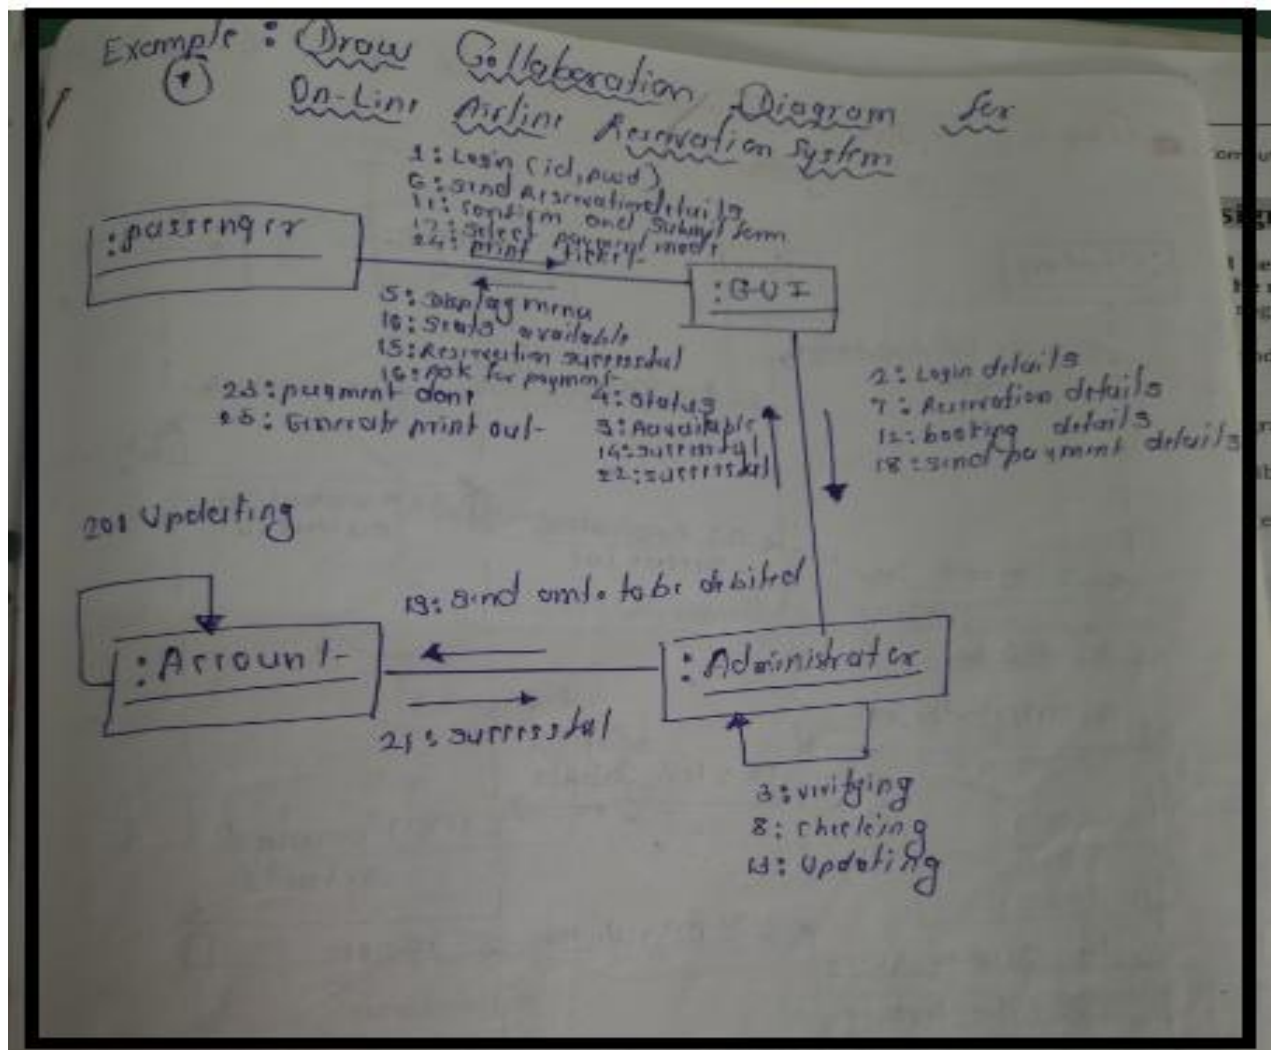 Example : Draw Collaboration Diagram for
1
On-Line Airline Reservation System
1: Login (id, pwd)
6: send Reservation details
11: confirm and submit form
17: select payment mode
24: print ticket
:passenger
:GUI
5: Display menu
10: seats available
15: Reservation successful
16: Ask for payment
23: payment done
25: Generate print out
4: status
9: Aavailable
14: successful
22: successful
2: Login details
7: Reservation details
12: booking details
18: send payment details
20: Updating
19: send amt. to be debited
:Account
:Administrator
21: successful
3: verifying
8: checking
13: Updating